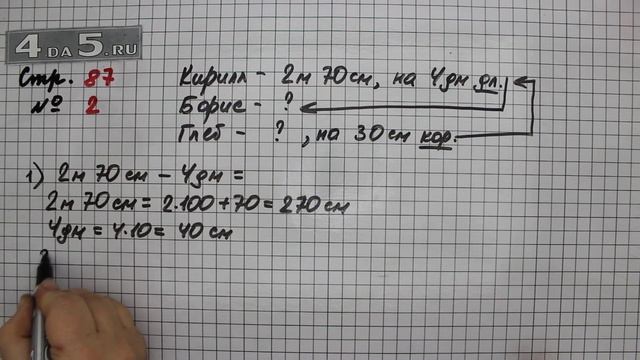 4DA5.RU
Стр. 87
№ 2
Кирилл - 2м 70см, на 4дм дл.
Борис - ?
Глеб - ? , на 30см кор.
1) 2м 70см - 4дм =
2м 70см = 2·100+70 = 270см
4дм = 4·10 = 40см